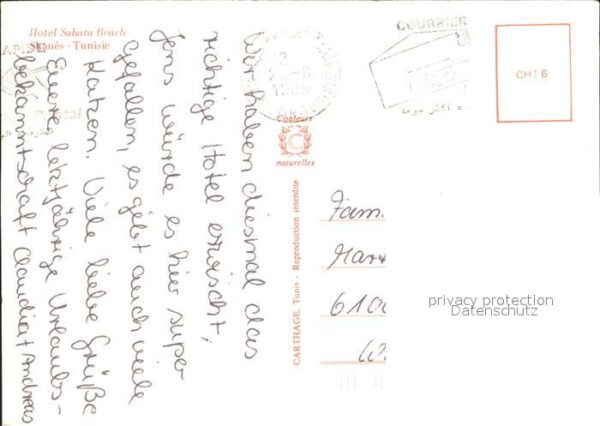 Hotel Sahara Beach
Skanès - Tunisie
Wir haben diesmal das
richtige Hotel erwischt,
Jens würde es hier super
gefallen, es gibt auch viele
Katzen. Viele liebe Grüße
Euere letztjährige Urlaubs-
bekanntschaft Claudia + Andreas
COURRIER
2
1989
CH16
Couleurs
C
naturelles
CARTHAGE, Tunis - Reproduction interdite
Fam.
Mar
610
privacy protection
Datenschutz